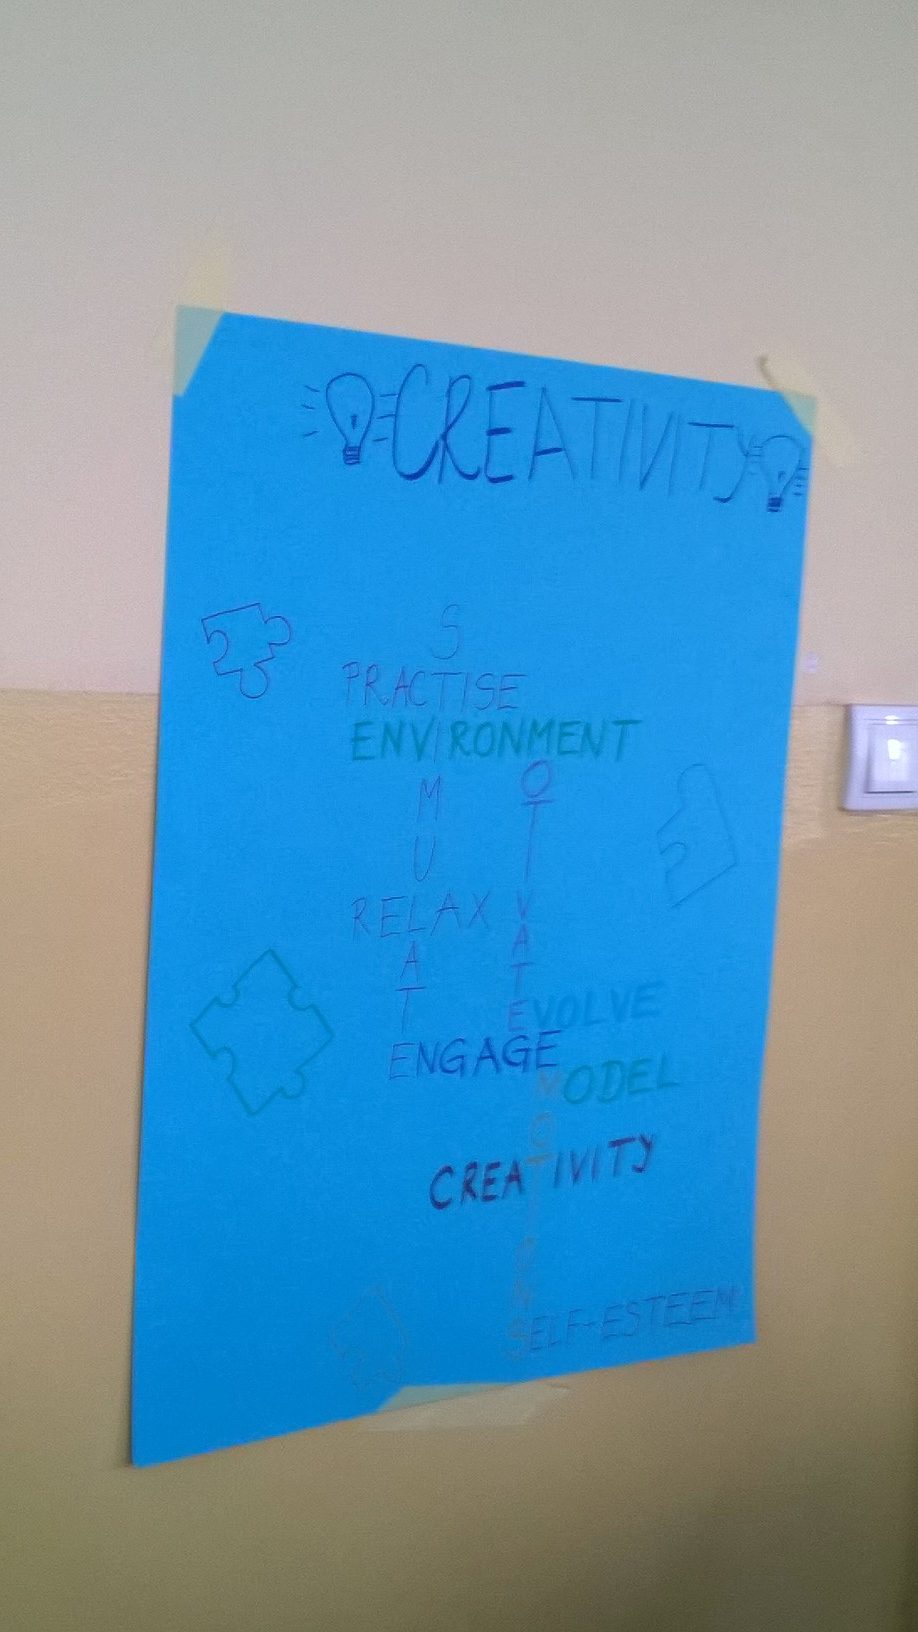 CREATIVITY
S
PRACTISE
ENVIRONMENT
O
T
M
I
U
RELAX V
A A
T T
EVOLVE
ENGAGE
MODEL
O
CREATIVITY
I
O
N
SELF-ESTEEM